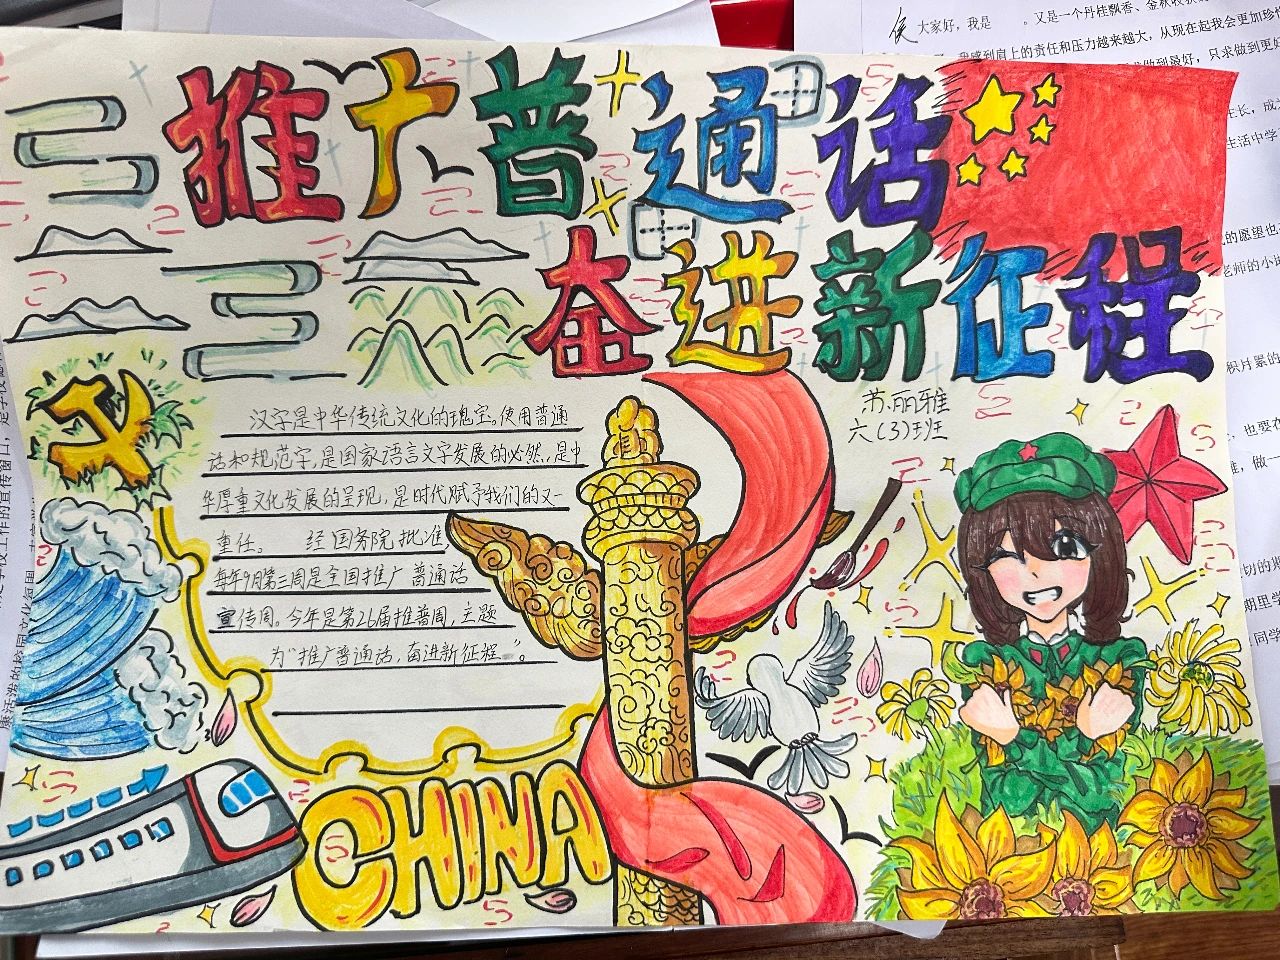 大家好，我是　　。又是一个丹桂飘香、金秋收获
感到肩上的责任和压力越来越大，从现在起我会更加珍惜
做到最好，只求做到更好
推广普通话
奋进新征程
苏丽雅
六(3)班
汉字是中华传统文化的瑰宝。使用普通
话和规范字，是国家语言文字发展的必然，是中
华厚重文化发展的呈现，是时代赋予我们的又一
重任。 经国务院批准
每年9月第三周是全国推广普通话
宣传周。今年是第26届推普周，主题
为"推广普通话，奋进新征程"。
CHINA